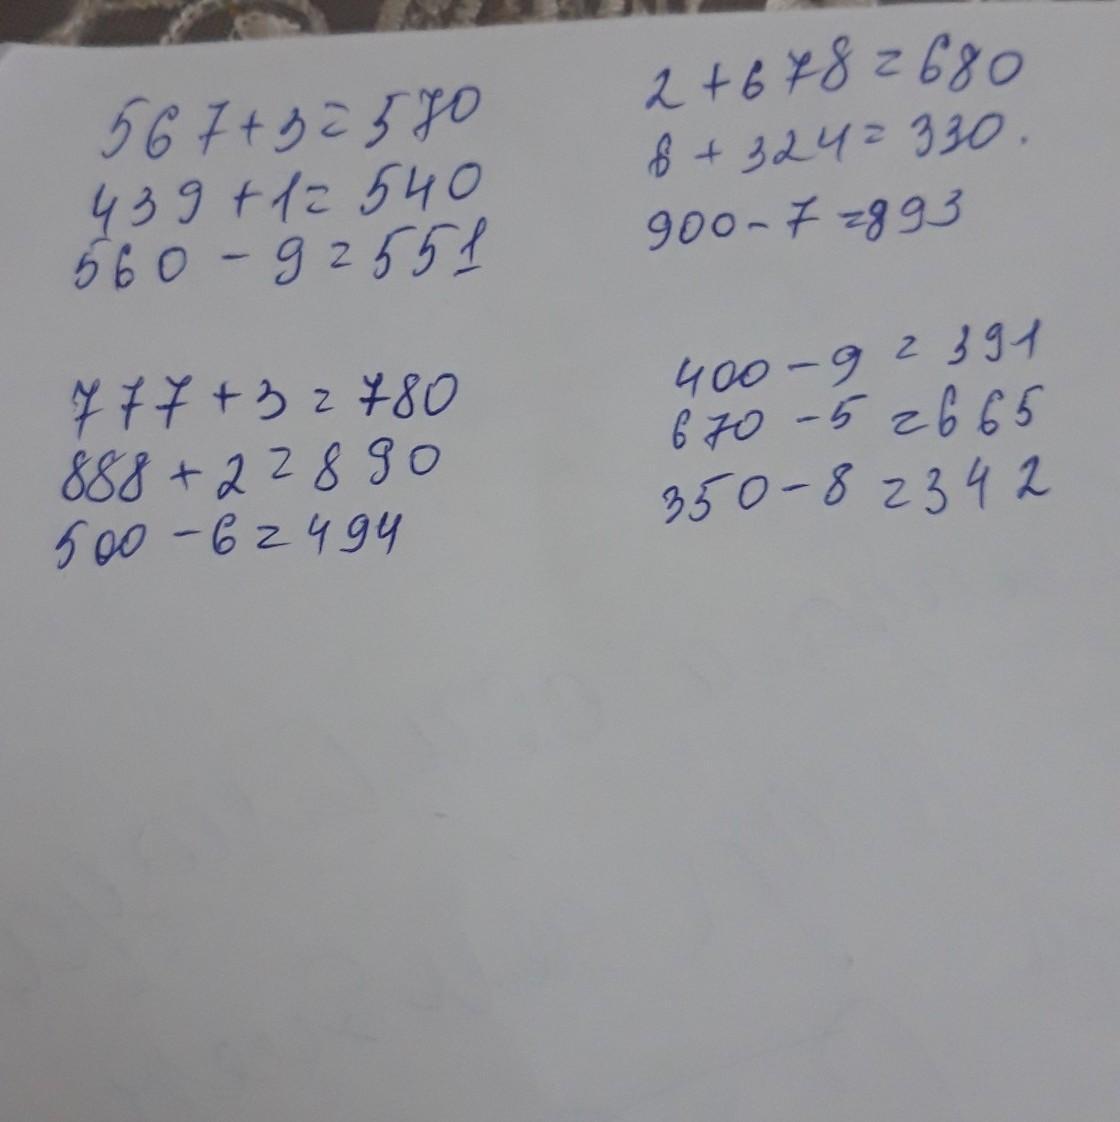 567+3=570
439+1=540
560-9=551
2+678=680
6+324=330.
900-7=893
777+3=780
888+2=890
500-6=494
400-9=391
670-5=665
350-8=342